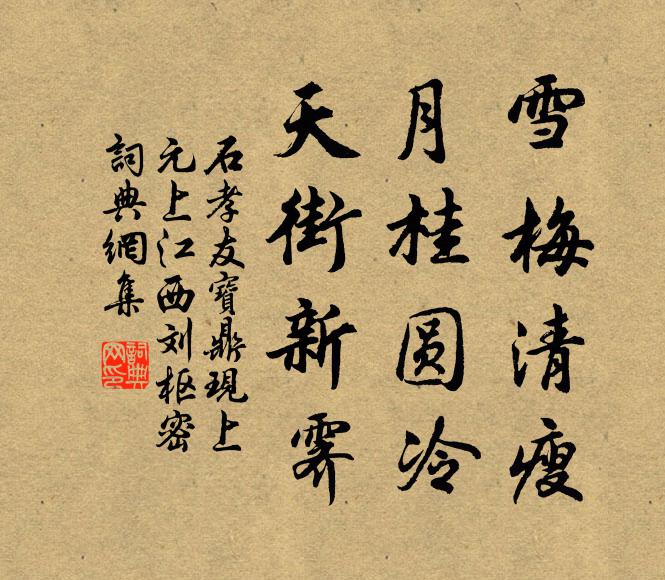 雪梅清瘦
月桂圆冷
天街新霁
石孝友寶鼎現上
元上江西刘枢密
詞典網集
詞典
网印